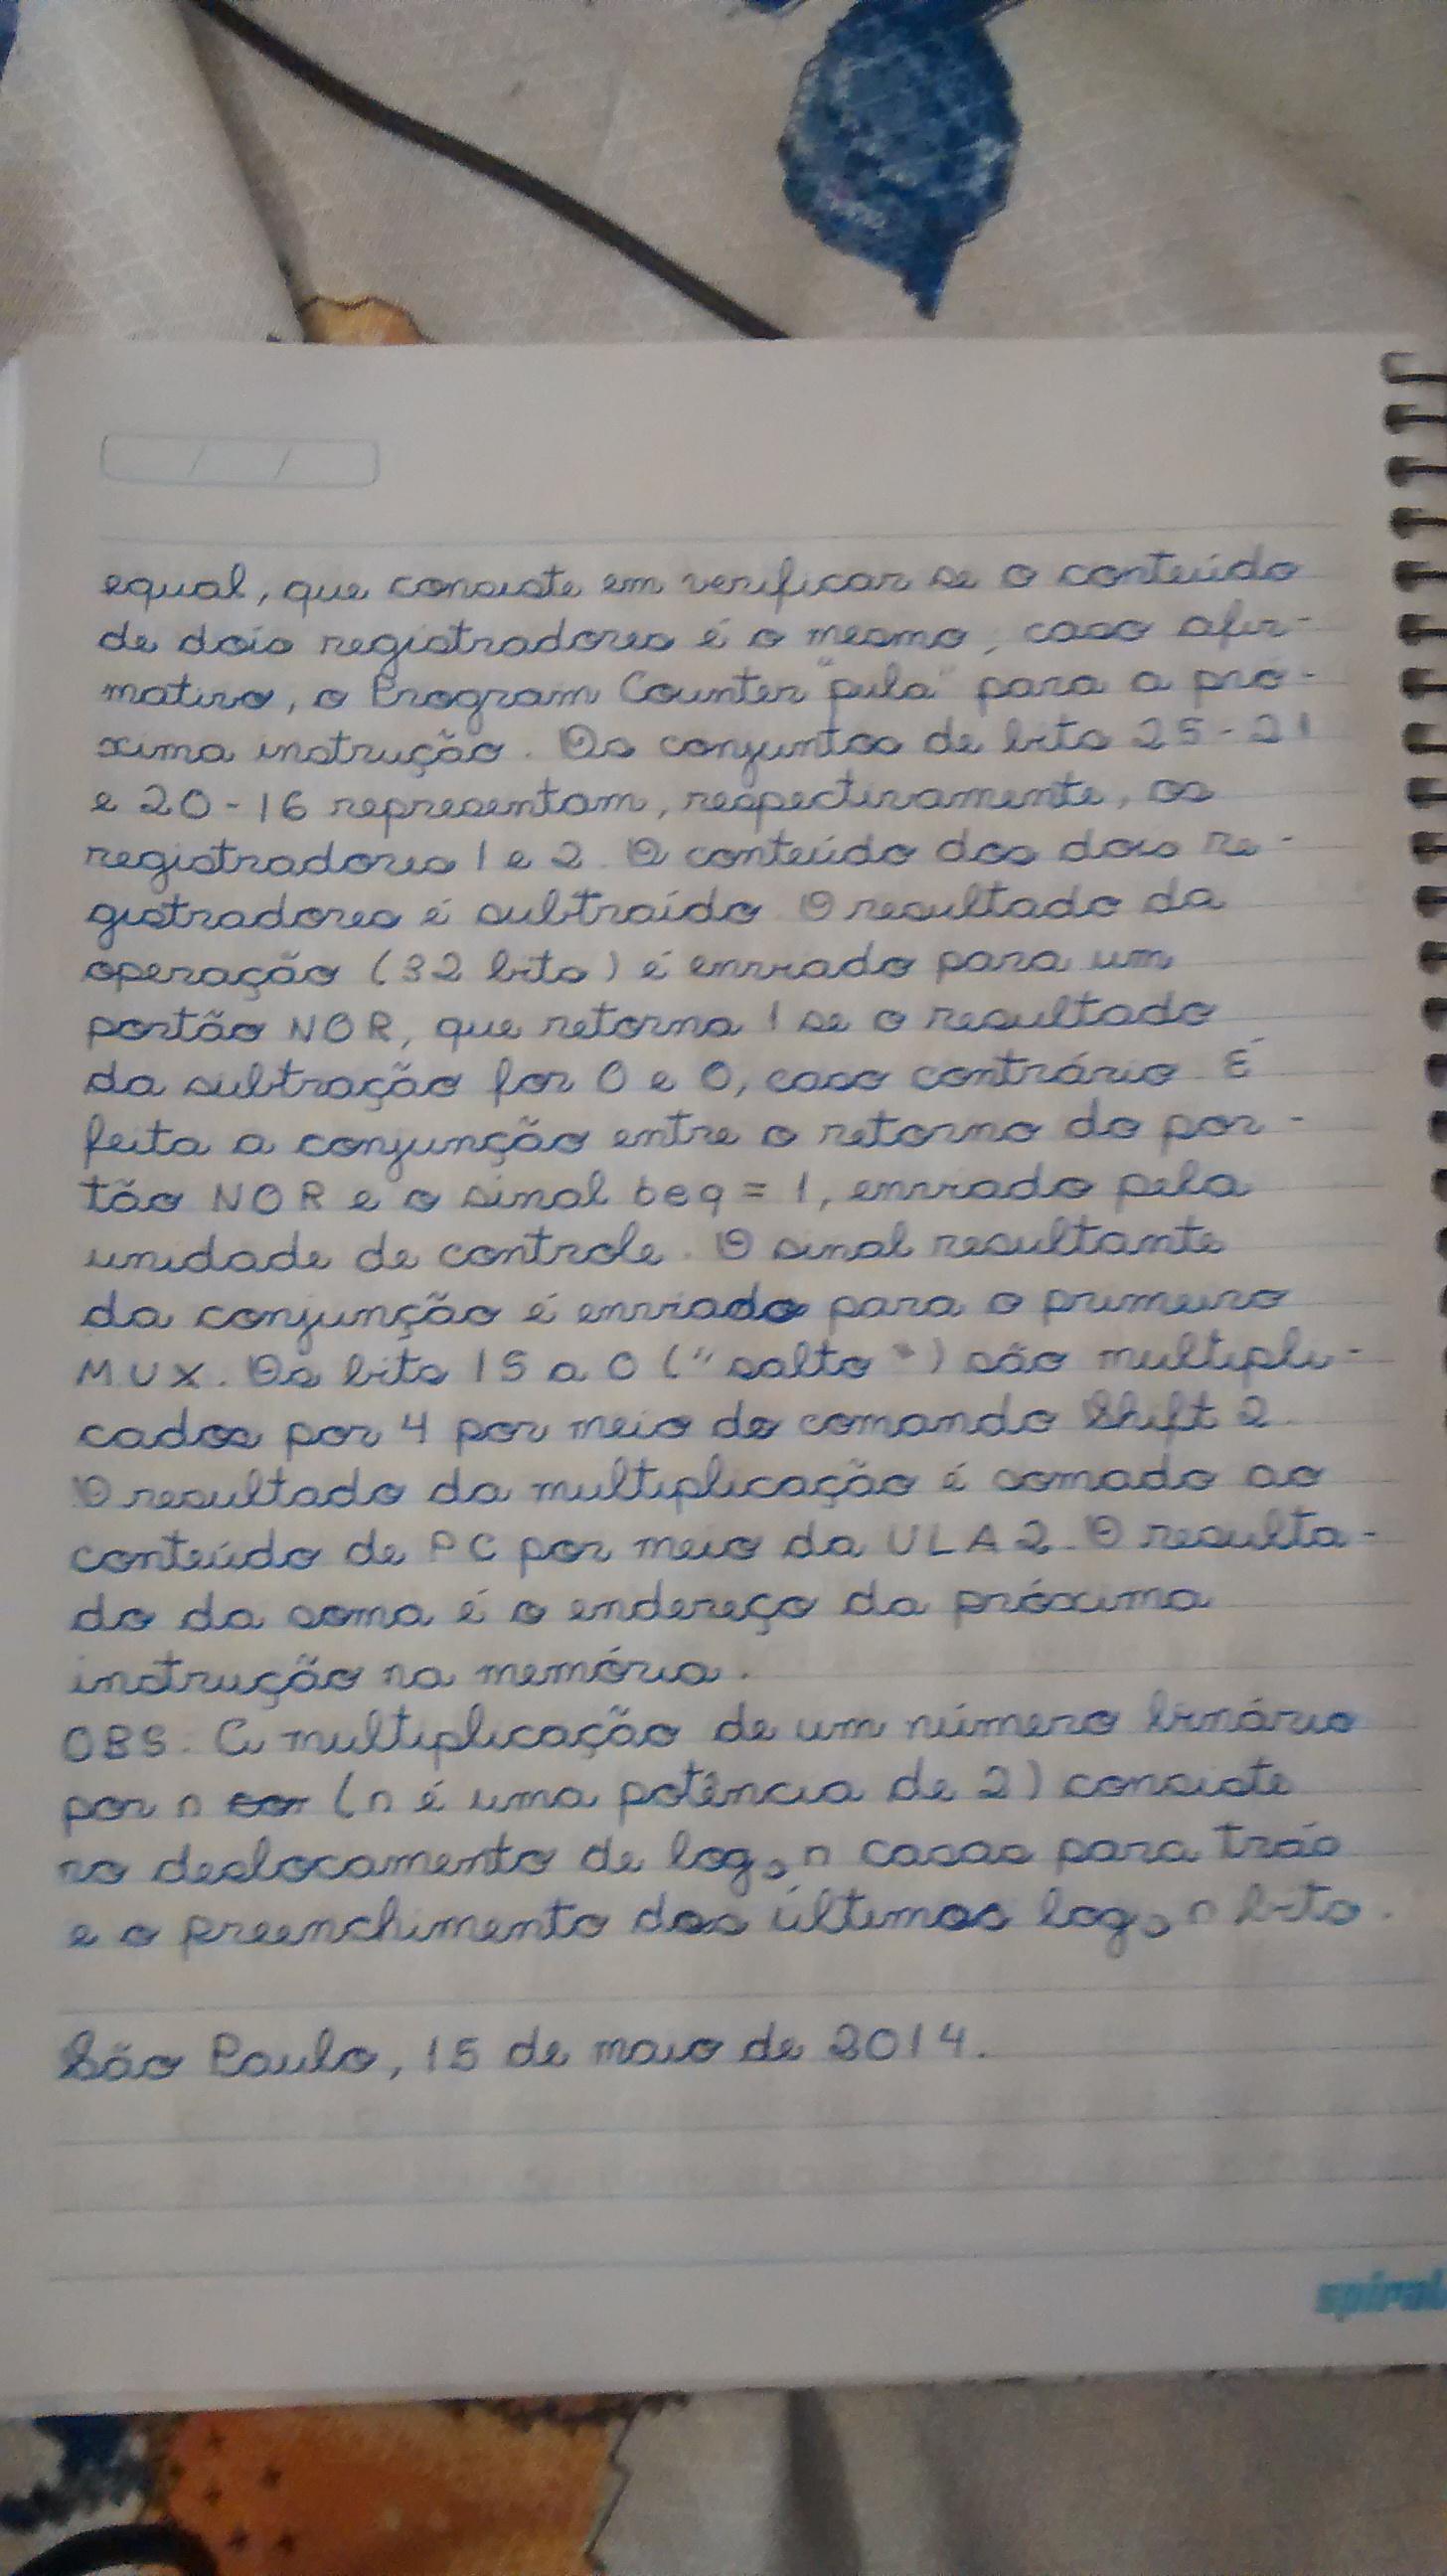 equal, que consiste em verificar se o conteúdo
de dois registradores é o mesmo, caso afir-
mativo, o Program Counter "pula" para a pró-
xima instrução. Os conjuntos de bits 25-21
e 20-16 representam, respectivamente, os
registradores 1 e 2. O conteúdo dos dois re-
gistradores é subtraído. O resultado da
operação (32 bits) é enviado para um
portão NOR, que retorna 1 se o resultado
da subtração for 0 e 0, caso contrário. É
feita a conjunção entre o retorno do por-
tão NOR e o sinal beq = 1, enviado pela
unidade de controle. O sinal resultante
da conjunção é enviado para o primeiro
MUX. Os bits 15 a 0 ("salto") são multipli-
cados por 4 por meio do comando Shift 2.
O resultado da multiplicação é somado ao
conteúdo de PC por meio da ULA 2. O resulta-
do da soma é o endereço da próxima
instrução na memória.
OBS. A multiplicação de um número binário
por n (n é uma potência de 2) consiste
no deslocamento de log₂ n casas para trás
e o preenchimento dos últimos log₂ n bits.
São Paulo, 15 de maio de 2014.
spiral